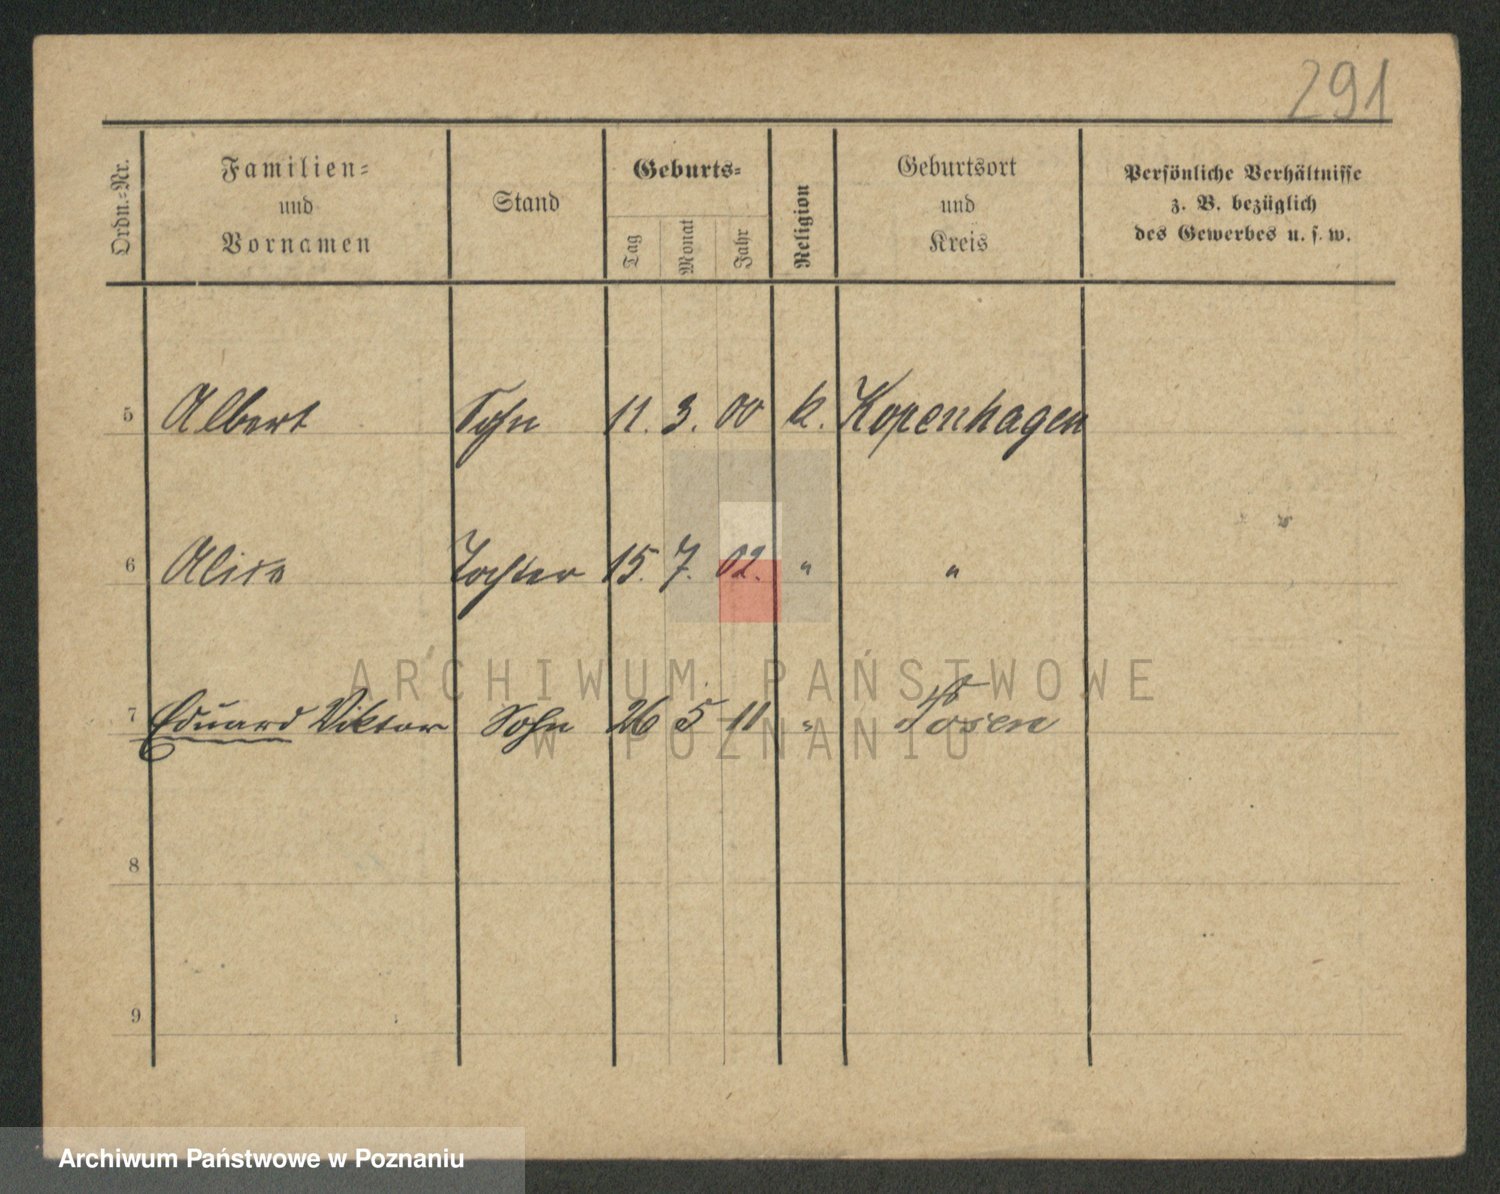 291
Ordn.-Nr.
Familien-
und
Vornamen
Stand
Geburts-
Tag
Monat
Jahr
Religion
Geburtsort
und
Kreis
Persönliche Verhältnisse
z. B. bezüglich
des Gewerbes u. s. w.
5 Albert Sohn 11. 3. 00 k. Kopenhagen
6 Alice Tochter 15. 7. 02. " "
7 Eduard Viktor Sohn 26 5 11 " Posen
8
9
ARCHIWUM PAŃSTWOWE
W POZNANIU
Archiwum Państwowe w Poznaniu